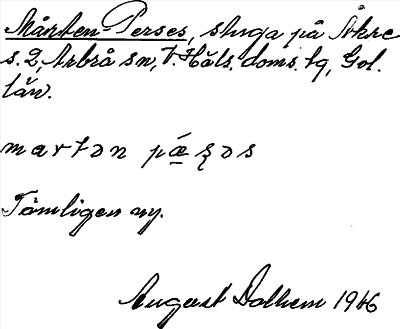 Mårten-Perses, stuga på Åkre
s. 2, Arbrå sn, V. Häls. doms. tg, Gäl.
län.
martən pæ̱ʂəs
Tämligen ny.
August Dalhem 1946